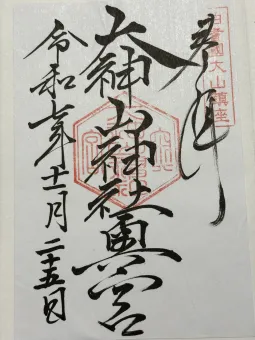 奉拝
伯耆國大山鎮座
大神山神社奥宮
令和七年十一月二十五日